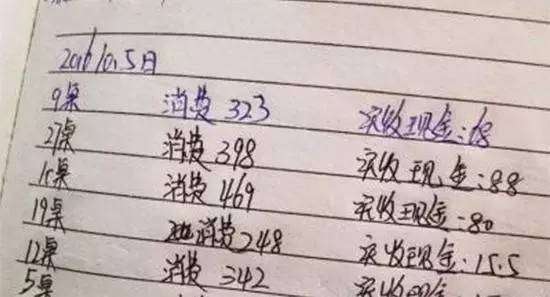 2016/10.5日
9桌 消费 323 实收现金:68
27桌 消费 398 实收现金:88
15桌 消费 469 实收现金:80
19桌 消费248 实收现金:15.5
12桌 消费 342 实收现金
5桌